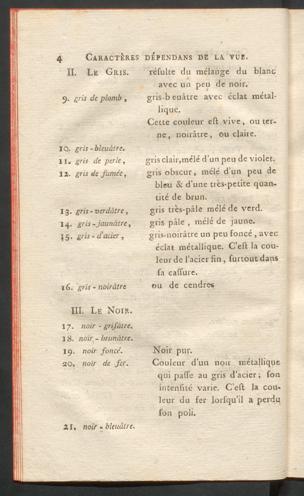 4 CARACTÈRES DÉPENDANS DE LA VUE.
II. LE GRIS. réſulte du mélange du blanc
avec un peu de noir.
9. gris de plomb, gris-bleuâtre avec éclat métal-
lique.
Cette couleur eſt vive, ou ter-
ne, noirâtre, ou claire.
10. gris-bleuâtre.
11. gris de perle, gris clair, mélé d'un peu de violet.
12. gris de fumée, gris obscur, mélé d'un peu de
bleu & d'une très-petite quan-
tité de brun.
13. gris-verdâtre, gris très-pâle mélé de verd.
14. gris-jaunâtre, gris pâle, mélé de jaune.
15. gris-d'acier, gris-noirâtre un peu foncé, avec
éclat métallique. C'eſt la cou-
leur de l'acier fin, ſurtout dans
ſa caſſure.
16. gris-noirâtre ou de cendres
III. LE NOIR.
17. noir-griſâtre.
18. noir-brunâtre.
19. noir foncé. Noir pur.
20. noir de fer. Couleur d'un noir métallique
qui paſſe au gris d'acier; ſon
intenſité varie. C'eſt la cou-
leur du fer lorſqu'il a perdu
ſon poli.
21. noir-bleuâtre.